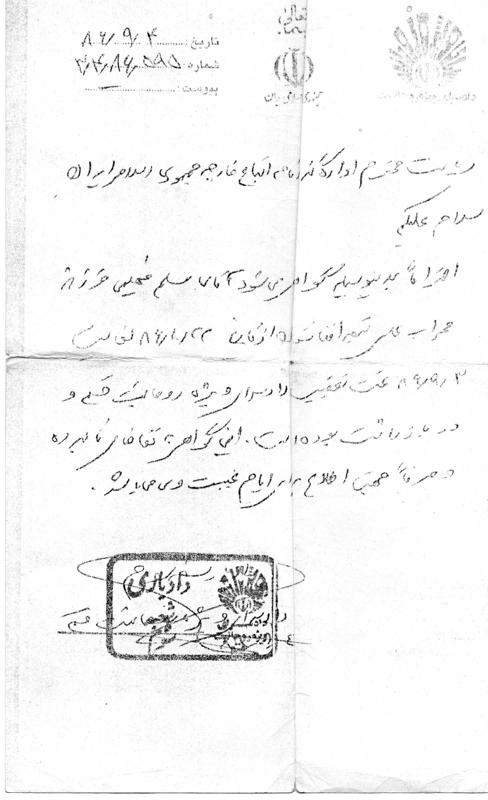 بسمه تعالی
تاریخ: ۸۶/۹/۴
شماره: ۳/۴/۸۶/۵۹۵
پیوست:
جمهوری اسلامی ایران
دادسرای ویژه روحانیت
ریاست محترم اداره گذرنامه اتباع خارجه جمهوری اسلامی ایران
سلام علیکم
احتراماً بدینوسیله گواهی می شود آقای مسلم فرزند
محراب علی از تاریخ ۸۶/۸/۲۲ لغایت
۸۶/۹/۳ تحت تحقیق دادسرای ویژه روحانیت قم و
در بازداشت بوده است. این گواهی به تقاضای نامبرده
و صرفاً جهت اطلاع برای ایام غیبت وی می باشد.
دادیاری
دادسرای ویژه روحانیت قم